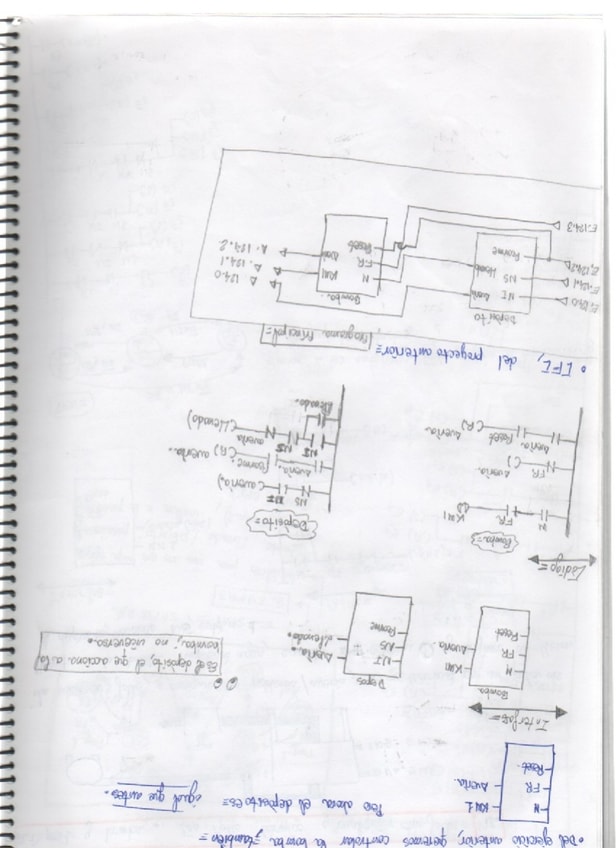 • Del ejercicio anterior, queremos controlar la bomba, también =
Pero ahora el deposito es = igual que antes.
M KM1
FR Avería.
Reset.
Interfaz =
Bomba
M KM1
FR Avería
Reset.
Depos
NI Avería.
NS Llenado.
Rearme
Es el depósito, el que acciona a la
bomba; no viceversa.
Código =
Bomba =
M FR KM1
FR Avería
Avería Reset Avería.
(R)
Depósito =
NS NI (avería)
avería Rearme (R) avería.
NI NS avería (llenado)
llenado.
• EFE, del proyecto anterior =
Programa Principal =
Depósito
E:124.0 NI Avería
E:124.1 NS Llenado
E:124.2 Rearme
E:124.3
Bomba.
M KM1 A 124.0
FR A: 124.1
Reset Avería A: 124.2